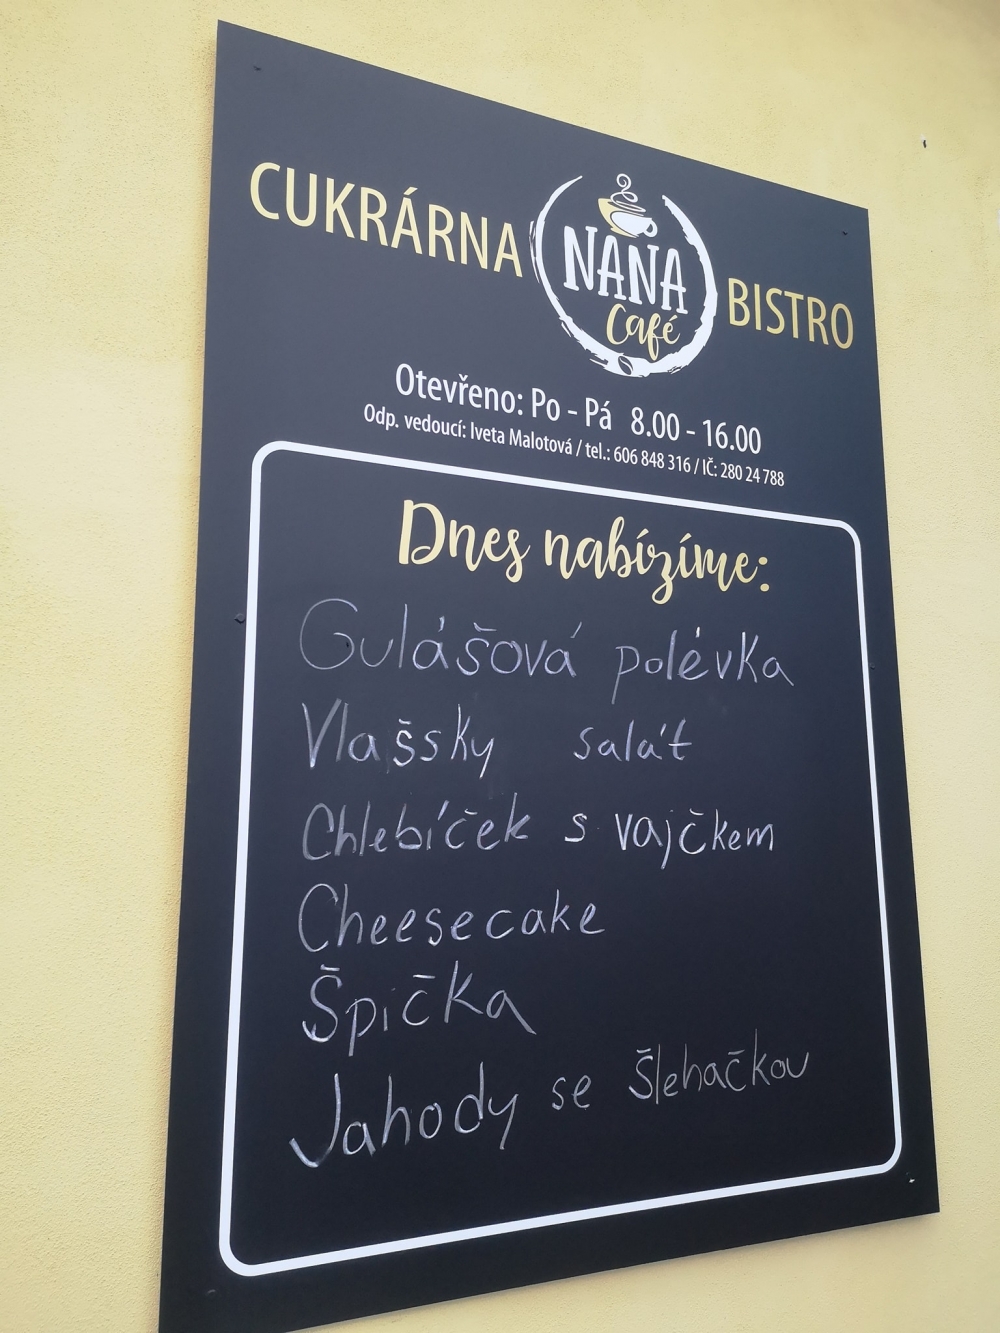 CUKRÁRNA
NANA
Café
BISTRO
Otevřeno: Po - Pá 8.00 - 16.00
Odp. vedoucí: Iveta Malotová / tel.: 606 848 316 / IČ: 280 24 788
Dnes nabízíme:
Gulášová polévka
Vlašsky salát
Chlebíček s vajčkem
Cheesecake
Špička
Jahody se šlehačkou